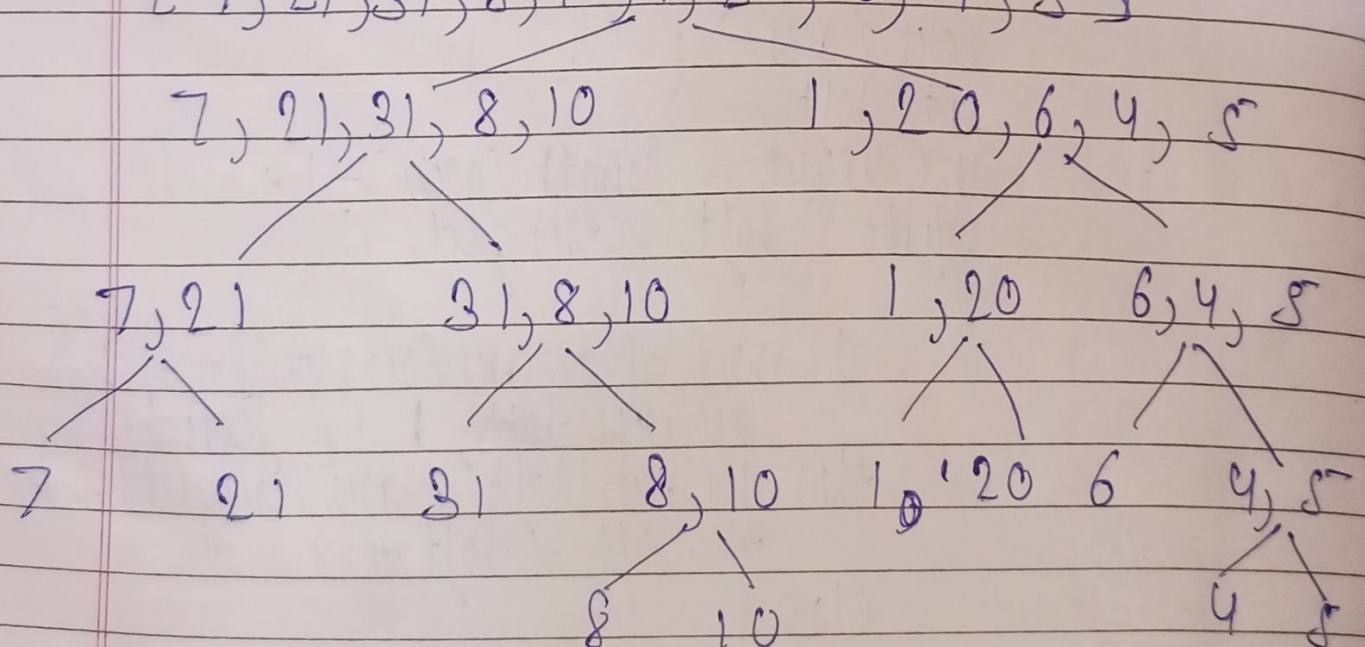 7, 21, 31, 8, 10 1, 20, 6, 4, 5
7, 21 31, 8, 10 1, 20 6, 4, 5
7 21 31 8, 10 1 20 6 4, 5
8 10 4 5